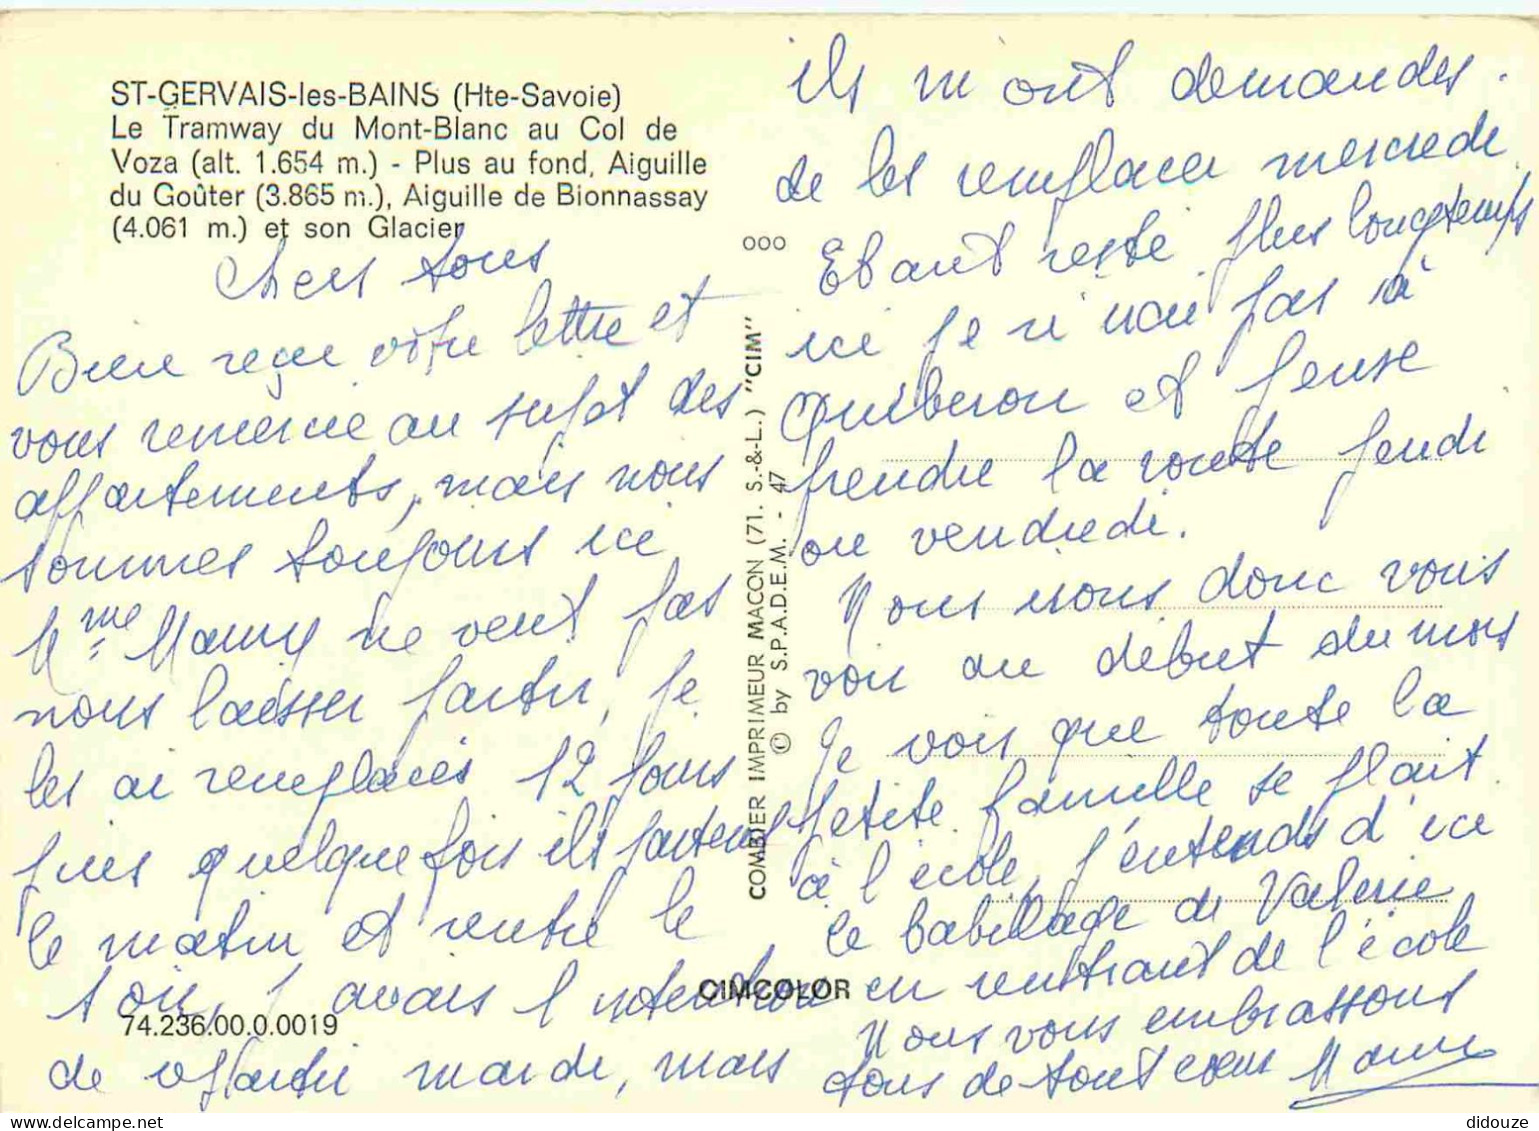 ST-GERVAIS-les-BAINS (Hte-Savoie)
Le Tramway du Mont-Blanc au Col de
Voza (alt. 1.654 m.) - Plus au fond, Aiguille
du Goûter (3.865 m.), Aiguille de Bionnassay
(4.061 m.) et son Glacier
Chers tous
Bien reçu votre lettre et
vous remercie au sujet des
appartements, mais nous
sommes toujours ici
Mme Mauny ne veut pas
nous laisser partir, je
les ai remplacés 12 jours
puis quelquefois ils partent
le matin et rentre le
soir, j avais l intention
de partir mardi, mais
74.236.00.0.0019
CIMCOLOR
COMBIER IMPRIMEUR MACON (71. S.-&-L.) "CIM"
© by S.P.A.D.E.M. - 47
ooo
ils m ont demandes.
de les remplacer mercredi
Etant resté plus longtemps
ici je n irai pas à
Quiberon et pense
prendre la route jeudi
ou vendredi.
Nous irons donc vous
voir au début du mois
Je vois que toute la
petite famille se plait
à l'école, j'entends d'ici
le babillage de Valerie
en rentrant de l'école
Nous vous embrassons
tous de tout coeur